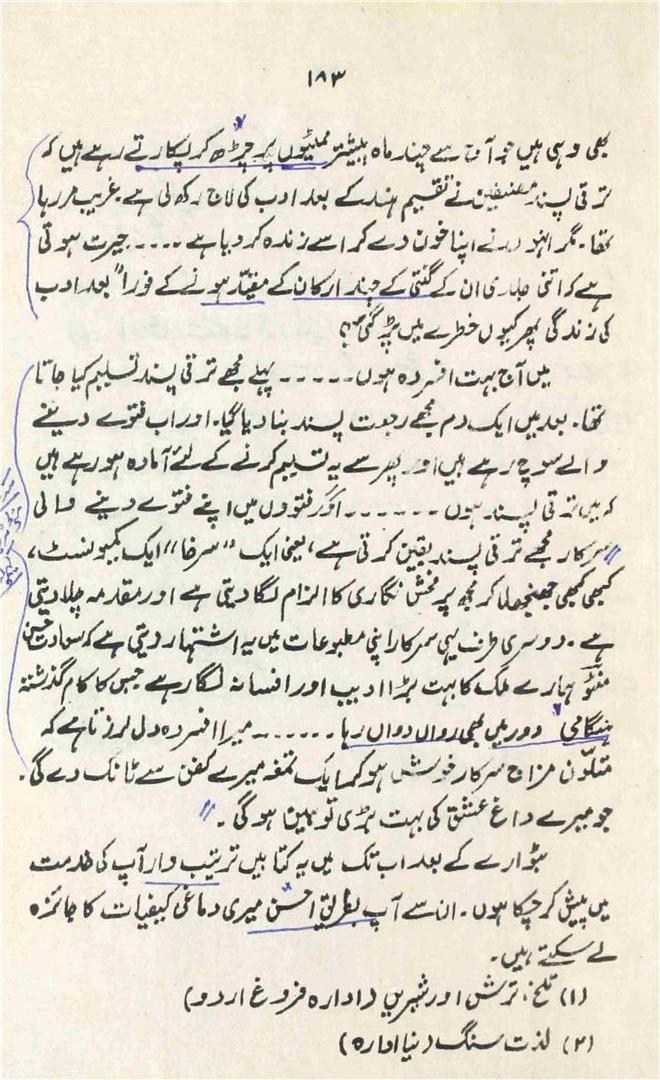 ۱۸۳
بھی وہی ہیں جو آج سے چند ماہ پیشتر ممٹیوں پر چڑھ کر پکارتے رہے ہیں کہ
ترقی پسند مصنفین نے تقسیم ہند کے بعد ادب کی لاج رکھ لی ہے۔ غریب مر رہا
تھا۔ مگر انہوں نے اپنا خون دے کر اسے زندہ کر دیا ہے ۔۔۔۔ حیرت ہوتی
ہے کہ اتنی جلدی ان کے گنتی کے چند ارکان کے مقیّد ہونے کے فوراً بعد ادب
کی زندگی پھر کیوں خطرے میں پڑ گئی؟
میں آج بہت افسردہ ہوں۔۔۔۔۔ پہلے مجھے ترقی پسند تسلیم کیا جاتا
تھا۔ بعد میں ایک دم مجھے رجعت پسند بنا دیا گیا۔ اور اب فتوے دینے
والے سوچ رہے ہیں اور پھر سے یہ تسلیم کرنے کے لئے آمادہ ہو رہے ہیں
کہ میں ترقی پسند ہوں ۔۔۔۔۔۔ اور فتووں میں اپنے فتوے دینے والی
سرکار مجھے ترقی پسند یقین کرتی ہے، یعنی ایک "سرخا" ایک کمیونسٹ،
کبھی کبھی جھنجھلا کر مجھ پر فحش نگاری کا الزام لگا دیتی ہے اور مقدمہ چلا دیتی
ہے۔ دوسری طرف یہی سرکار اپنی مطبوعات میں یہ اشتہار دیتی ہے کہ سعادت حسن
منٹو ہمارے ملک کا بہت بڑا ادیب اور افسانہ نگار ہے جس کا کام گذشتہ
ہنگامی دور میں بھی رواں دواں رہا ۔۔۔۔۔۔ میرا افسردہ دل لرزتا ہے کہ
متلوّن مزاج سرکار خوش ہو کر ایک تمغہ میرے کفن سے ٹانک دے گی۔
جو میرے داغ عشق کی بہت بڑی توہین ہو گی۔
بٹوارے کے بعد اب تک میں یہ کتابیں ترتیب وار آپ کی خدمت
میں پیش کر چکا ہوں۔ ان سے آپ بطریق احسن میری دماغی کیفیات کا جائزہ
لے سکتے ہیں۔
(۱) تلخ، ترش اور شیریں (ادارہ فروغ اردو)
(۲) لذت سنگ (نیا ادارہ)